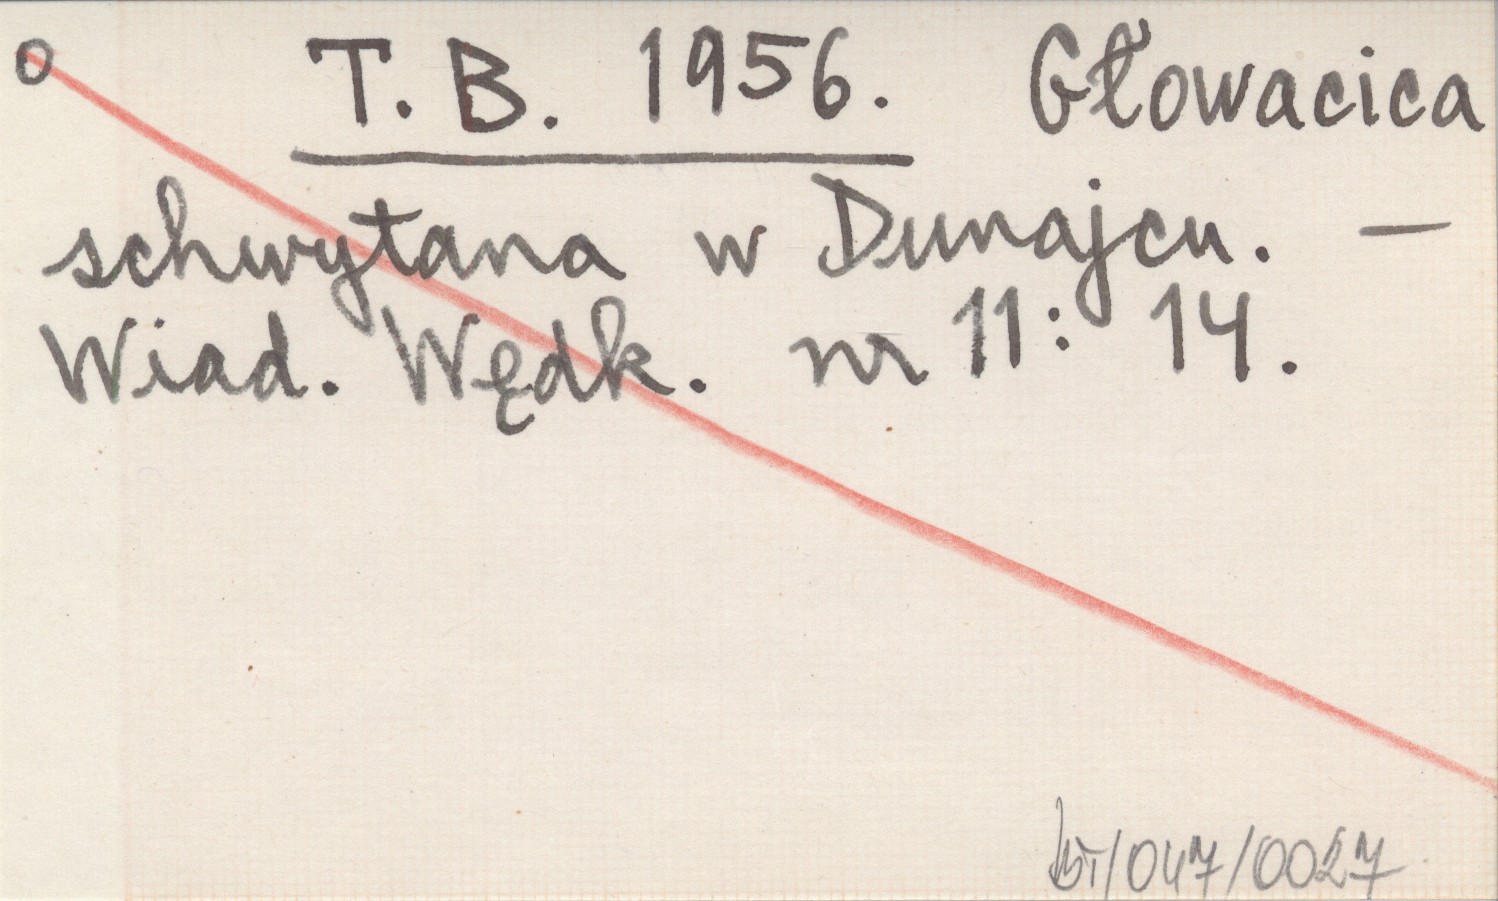 o T. B. 1956. Głowacica
schwytana w Dunajcu. —
Wiad. Wędk. nr 11: 14.
/047/0027